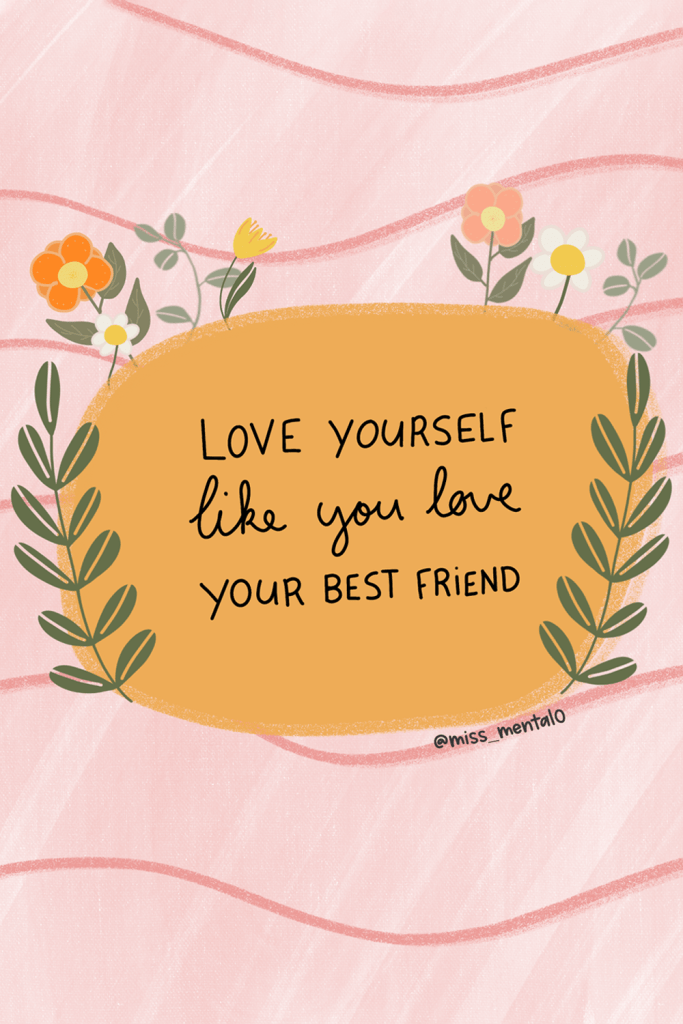 LOVE YOURSELF
like you love
YOUR BEST FRiEND
@miss_mental0